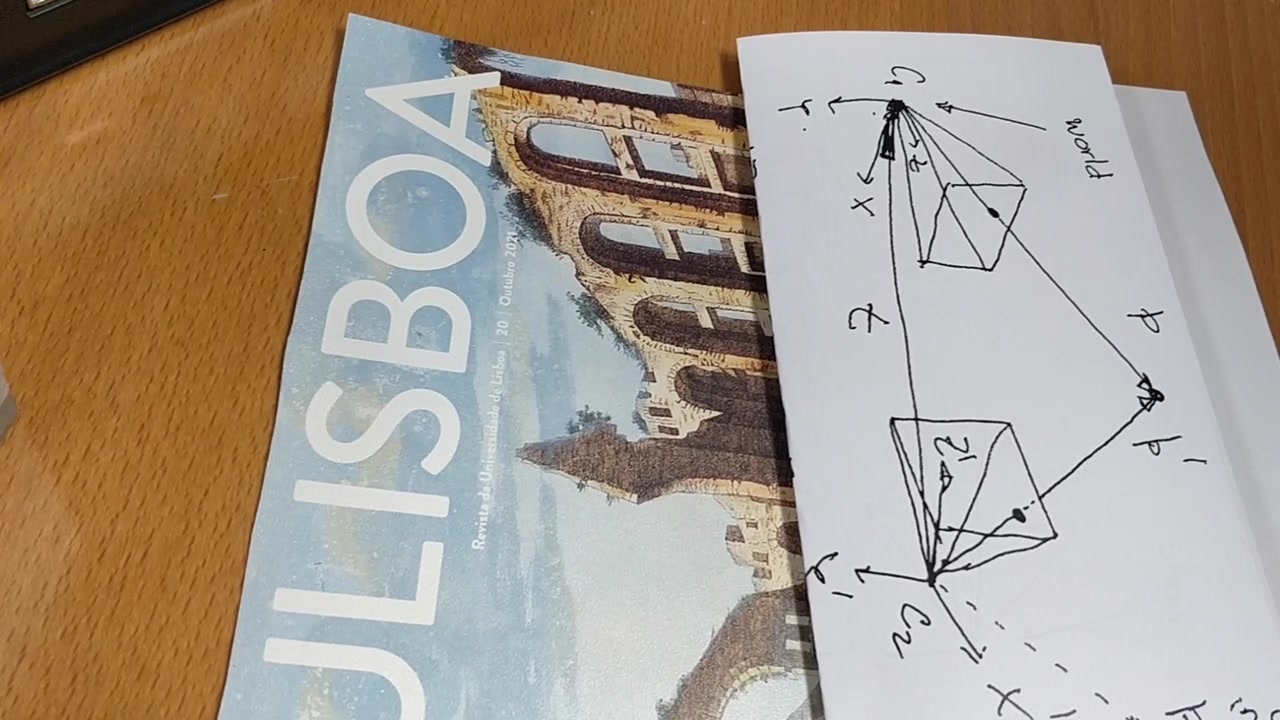 ULISBOA
Revista da Universidade de Lisboa | 20 | Outubro 2021
C1
world
Y
X
Z
p
p'
z'
Y'
C2
X